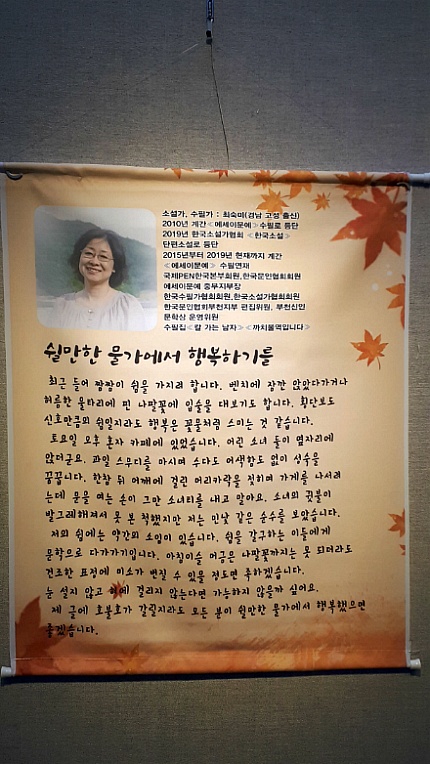 소설가, 수필가 : 최숙미(경남 고성 출신)
2010년 계간<에세이문예>수필로 등단
2019년 한국소설가협회 <한국소설>
단편소설로 등단
2015년부터 2019년 현재까지 계간
<에세이문예> 수필연재
국제PEN한국본부회원,한국문인협회회원
에세이문예 중부지부장
한국수필가협회회원,한국소설가협회회원
한국문인협회부천지부 편집위원, 부천신인
문학상 운영위원
수필집<칼 가는 남자> <까치울역입니다>
쉴만한 물가에서 행복하기를
최근 들어 짬짬이 쉼을 가지려 합니다. 벤치에 잠깐 앉았다가거나
허름한 울타리에 핀 나팔꽃에 입술을 대보기도 합니다. 횡단보도
신호만큼의 쉼일지라도 행복은 꽃물처럼 스미는 것 같습니다.
토요일 오후 혼자 카페에 있었습니다. 어린 소녀 둘이 옆자리에
앉더군요. 과일 스무디를 마시며 수다도 어색함도 없이 성숙을
꿈꿉니다. 한참 뒤 어깨에 걸린 머리카락을 젖히며 가게를 나서려
는데 문을 여는 손이 그만 소녀티를 내고 말아요. 소녀의 귓불이
발그레해져서 못 본 척했지만 저는 민낯 같은 순수를 보았습니다.
저의 쉼에는 약간의 소임이 있습니다. 쉼을 갈구하는 이들에게
문학으로 다가가기입니다. 아침이슬 머금은 나팔꽃까지는 못 되더라도
건조한 표정에 미소가 번질 수 있을 정도면 족하겠습니다.
눈 설지 않고 혀에 걸리지 않는다면 가능하지 않을까 싶어요.
제 글에 호불호가 갈릴지라도 모든 분이 쉴만한 물가에서 행복했으면
좋겠습니다.